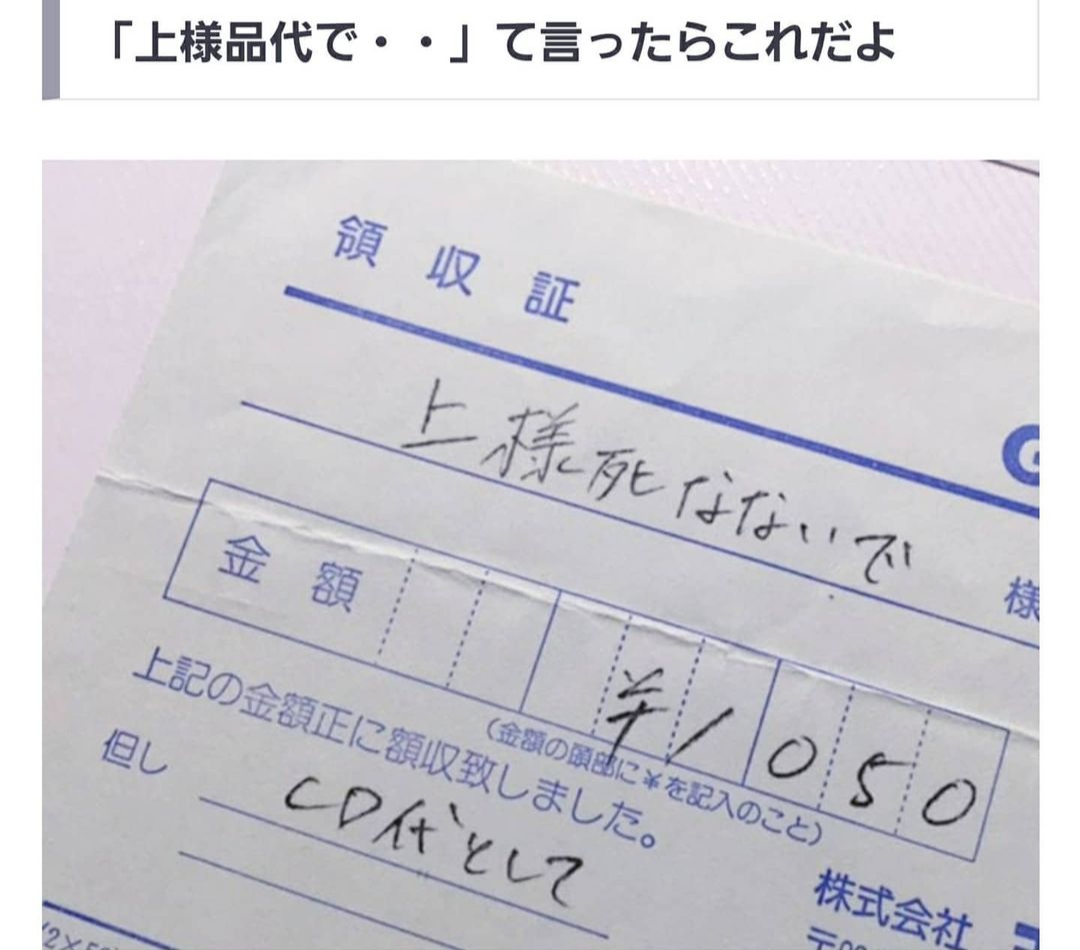 「上様品代で・・」て言ったらこれだよ
領収証
上様死なないで 様
金額 ¥1050
(金額の頭部に¥を記入のこと)
上記の金額正に額収致しました。
但し CD代として
株式会社